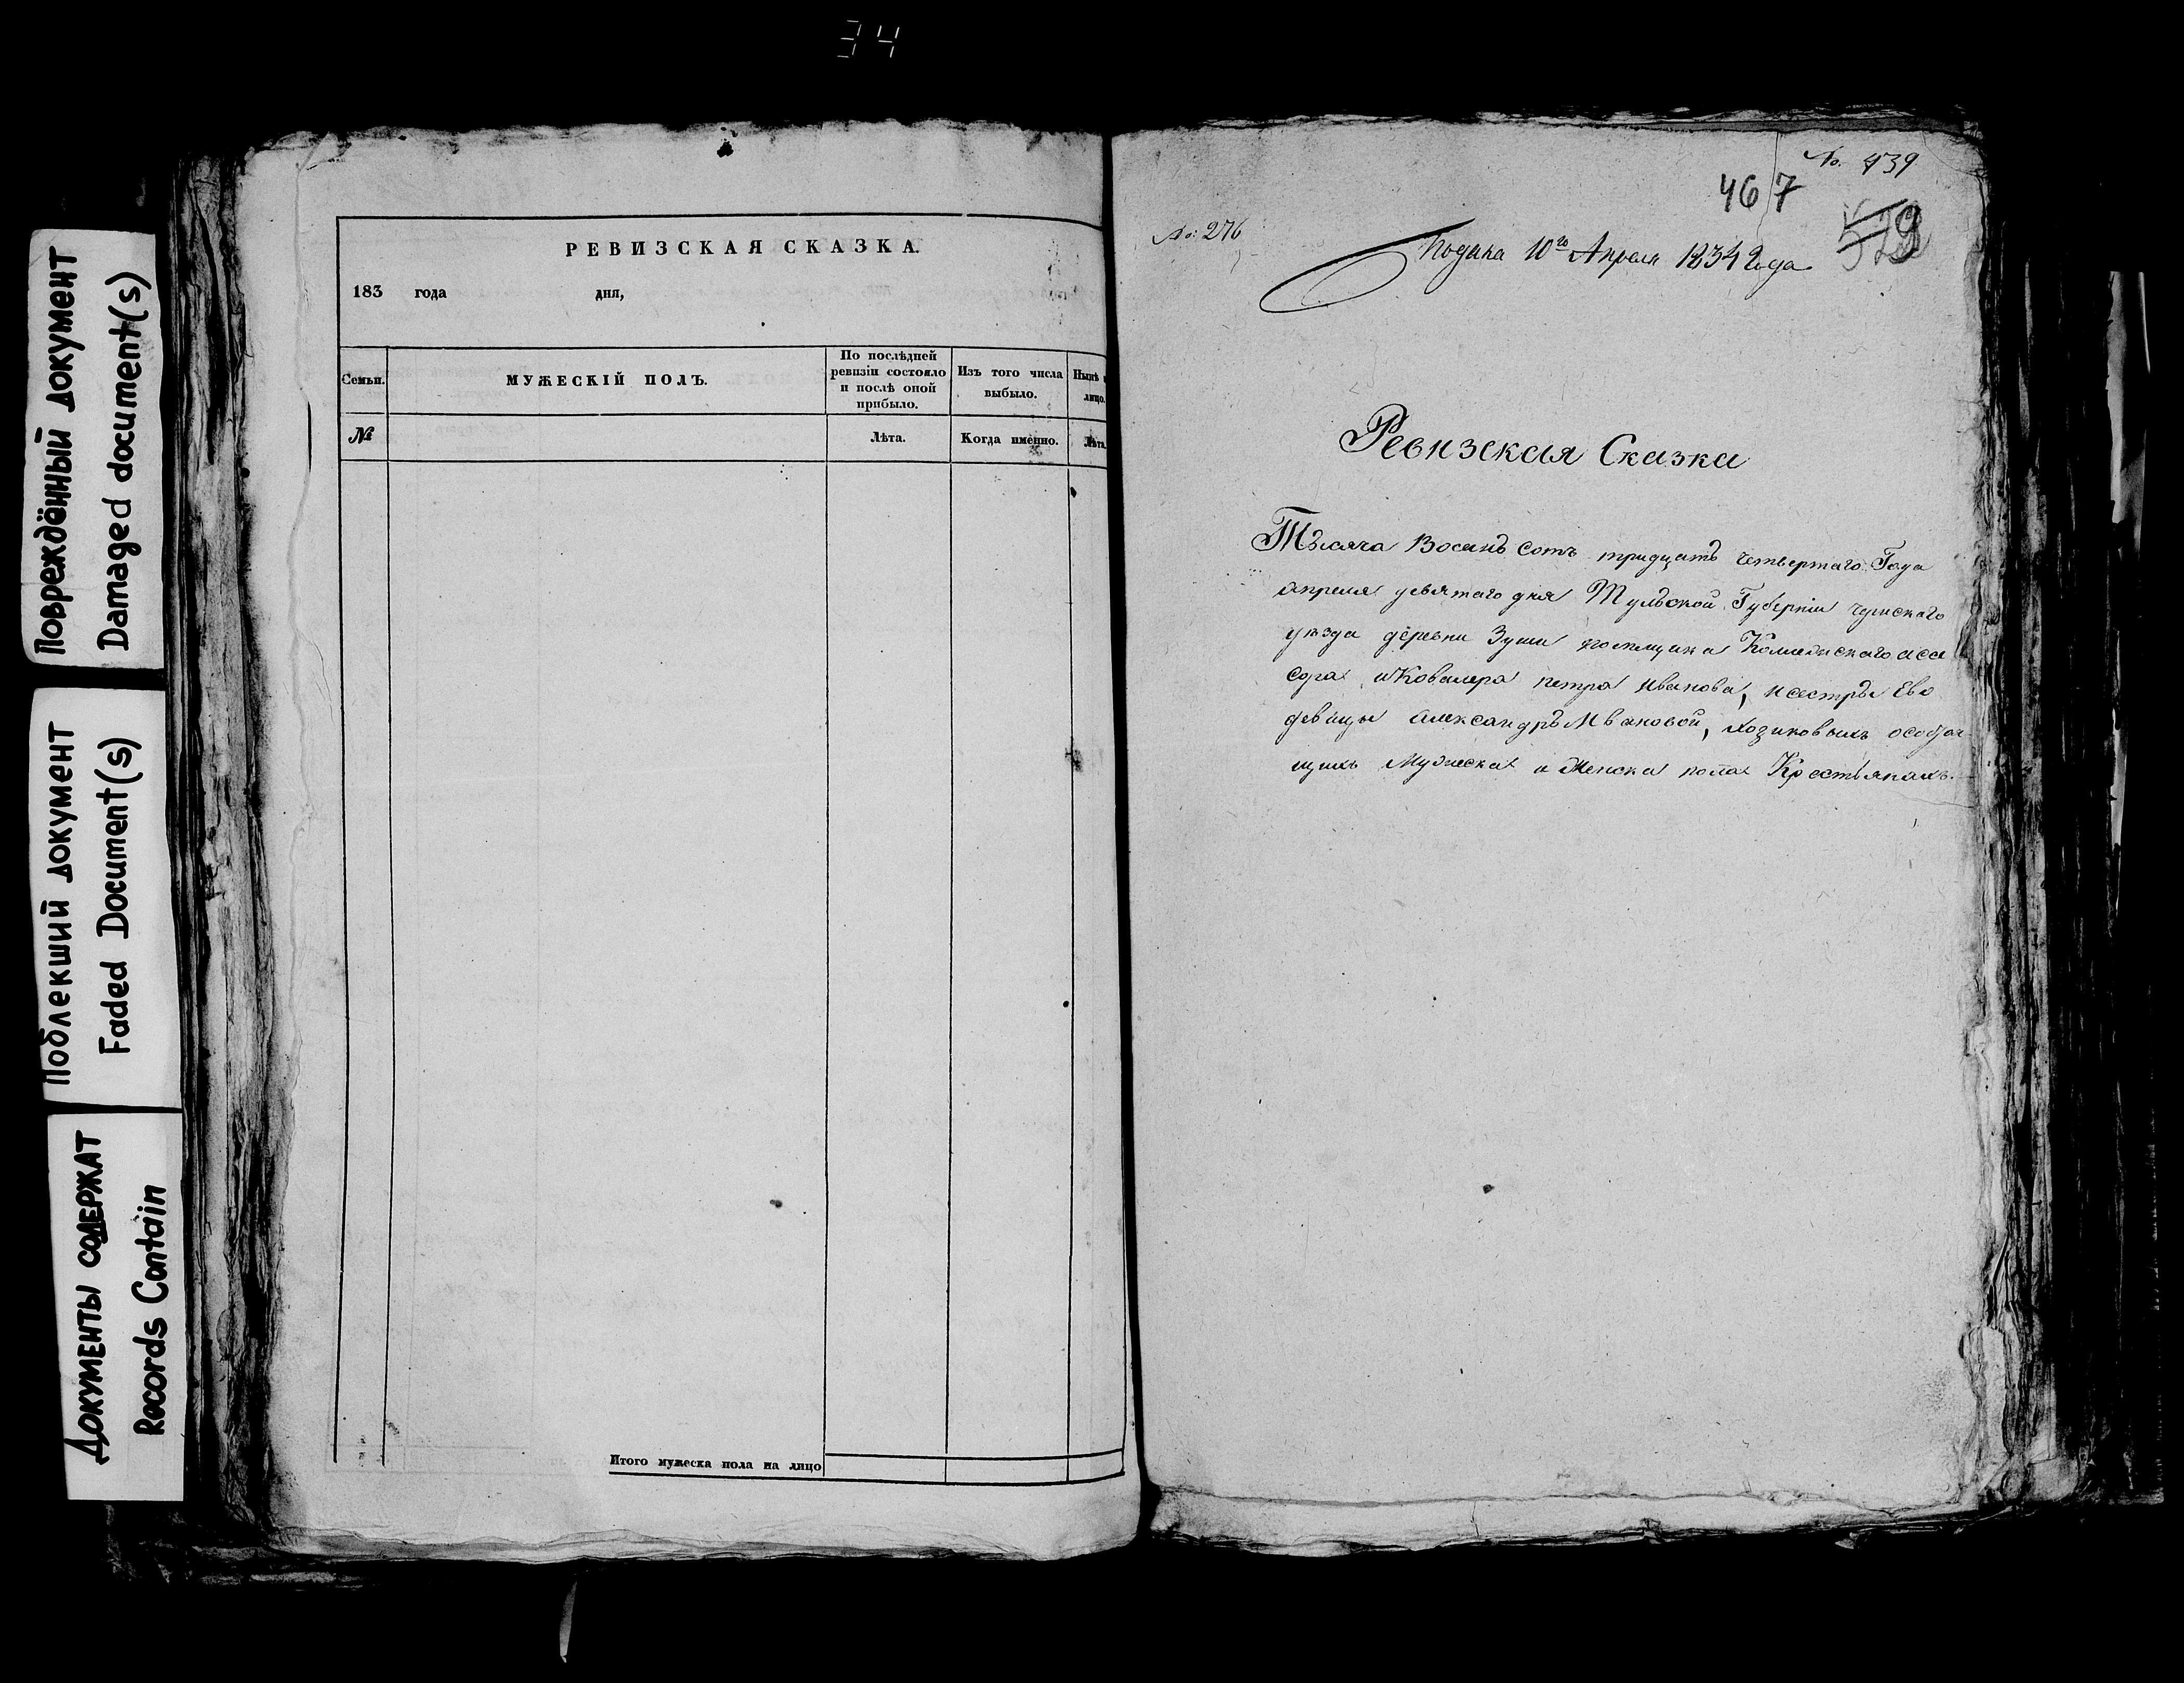 34
Повреждённый документ
Damaged document(s)
Поблекший документ
Faded Document(s)
Документы содержат
Records Contain
РЕВИЗСКАЯ СКАЗКА.
183 года дня,
Семьи.
МУЖЕСКІЙ ПОЛЪ.
По послѣдней
ревизіи состояло
и послѣ оной
прибыло.
Изъ того числа
выбыло.
Нынѣ
лицо.
№
Лѣта.
Когда именно.
Лѣта.
Итого мужеска пола на лицо
No. 439
467
No: 276
Подана 10го Апреля 1834 Года
Ревизская Сказка
Тысяча Восемь Сотъ тридцать четвертаго Года
апреля девятаго дня Тульской Губерніи чернскаго
уѣзда деревни Зуши помещика Колежскаго асе
сора и Ковалера петра иванова, и сестры Ево
девицы александры Ивановой,
мужеска и женска пола Крестьянахъ.